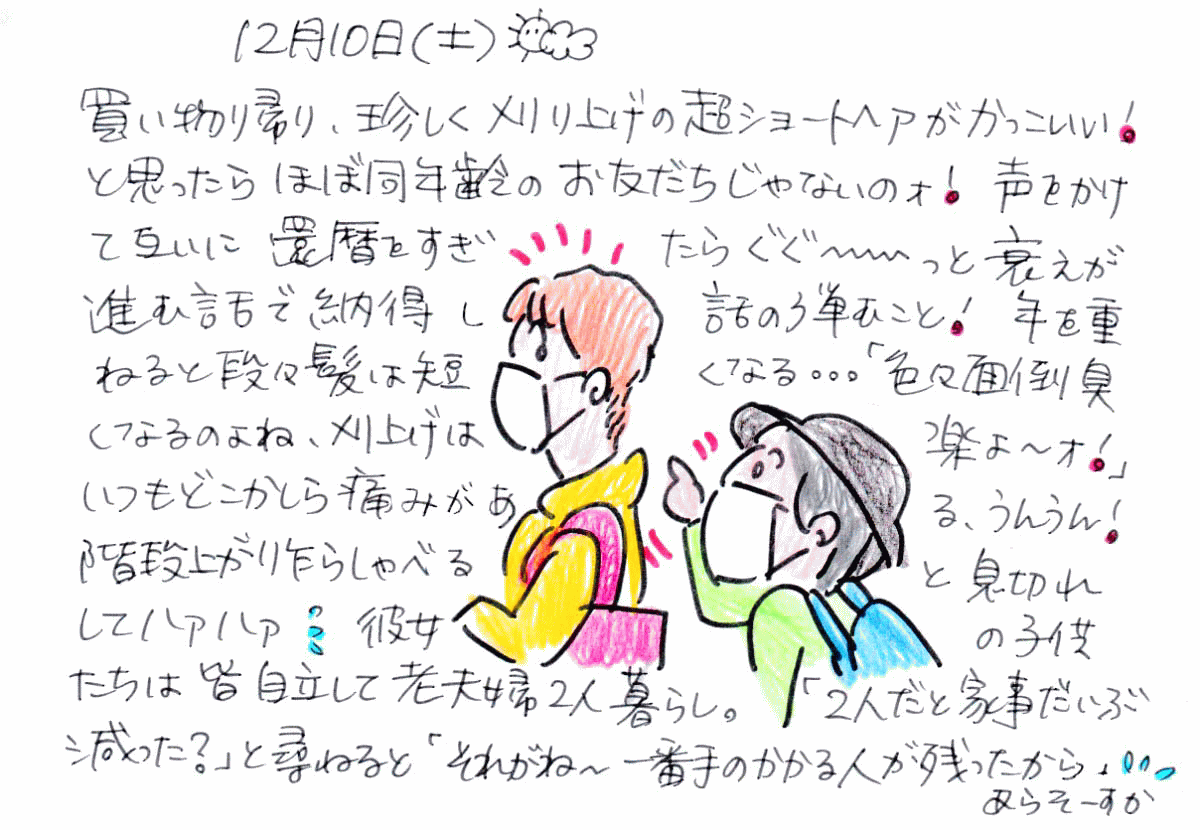 12月10日(土)
買い物り帰り、珍しく刈り上げの超ショートヘアがかっこいい!
と思ったらほぼ同年齢のお友だちじゃないのォ!声をかけ
て互いに還暦をすぎたらぐぐ〜〜〜っと衰えが
進む話で納得し話の弾むこと!年を重
ねると段々髪は短くなる・・・「色々面倒臭
くなるのよね、刈上げは楽よ〜ォ!」
いつもどこかしら痛みがある、うんうん!
階段上がり乍らしゃべると息切れ
してハァハァ 彼女の子供
たちは皆自立して老夫婦2人暮らし。「2人だと家事だいぶ
減った?」と尋ねると「それがね〜一番手のかかる人が残ったから、
あらそーすか